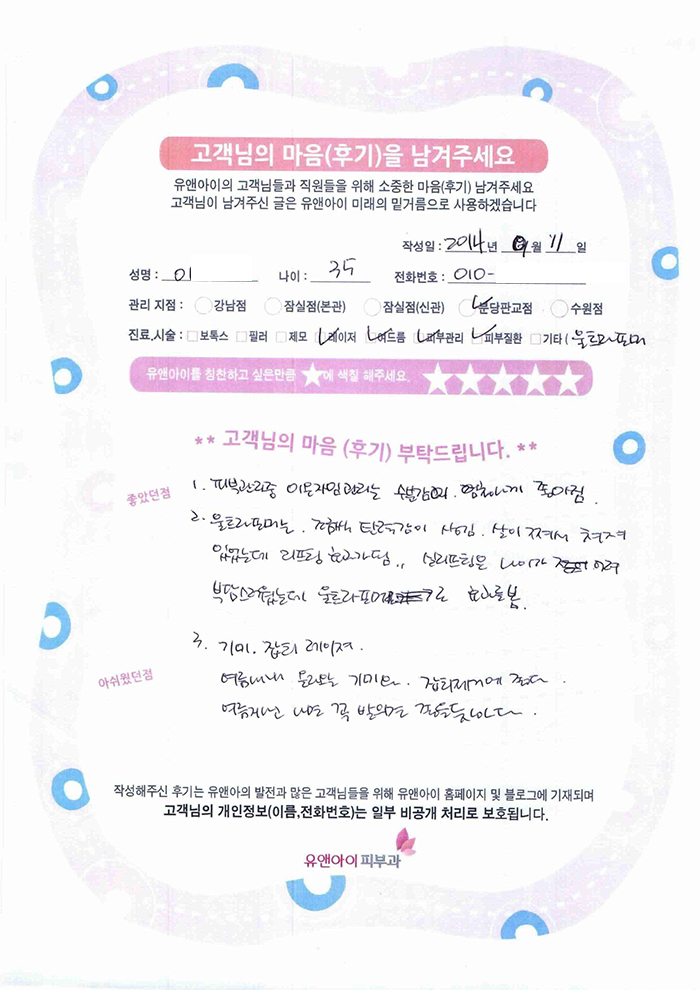 고객님의 마음(후기)을 남겨주세요
유앤아이의 고객님들과 직원들을 위해 소중한 마음(후기) 남겨주세요
고객님이 남겨주신 글은 유앤아이 미래의 밑거름으로 사용하겠습니다
작성일 : 2014년 9월 11일
성명 : 이 나이 : 35 전화번호 : 010-
관리 지점 : 강남점 잠실점(본관) 잠실점(신관) 분당판교점 수원점
진료,시술 : 보톡스 필러 제모 레이저 여드름 피부관리 피부질환 기타 ( 울트라포머
유앤아이를 칭찬하고 싶은만큼 ★에 색칠 해주세요. ★★★★★
** 고객님의 마음 (후기) 부탁드립니다. **
좋았던점
1. 피부관리중 이온자임관리는 수분감이. 좋아짐.
2. 울트라포머는. 탄력감이 생김. 살이 쪄서 쳐져
있었는데 리프팅 효과가됨,, 실리프팅은 나이가 어려
부담스러웠는데 울트라포머로 효과를봄.
아쉬웠던점
3. 기미. 잡티 레이저.
여름내내 올라오는 기미와. 잡티제거에 좋다.
여름지난 나면 꼭 받으면 좋을듯하다.
작성해주신 후기는 유앤아의 발전과 많은 고객님들을 위해 유앤아이 홈페이지 및 블로그에 기재되며
고객님의 개인정보(이름,전화번호)는 일부 비공개 처리로 보호됩니다.
유앤아이피부과